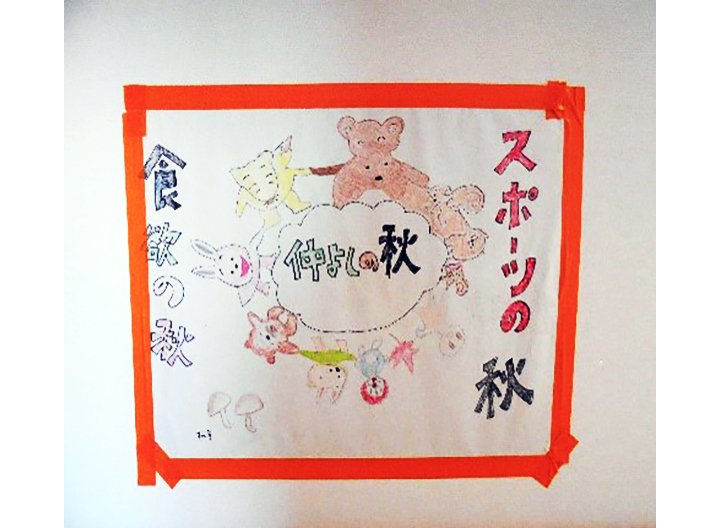 スポーツの秋
仲よしの秋
食欲の秋